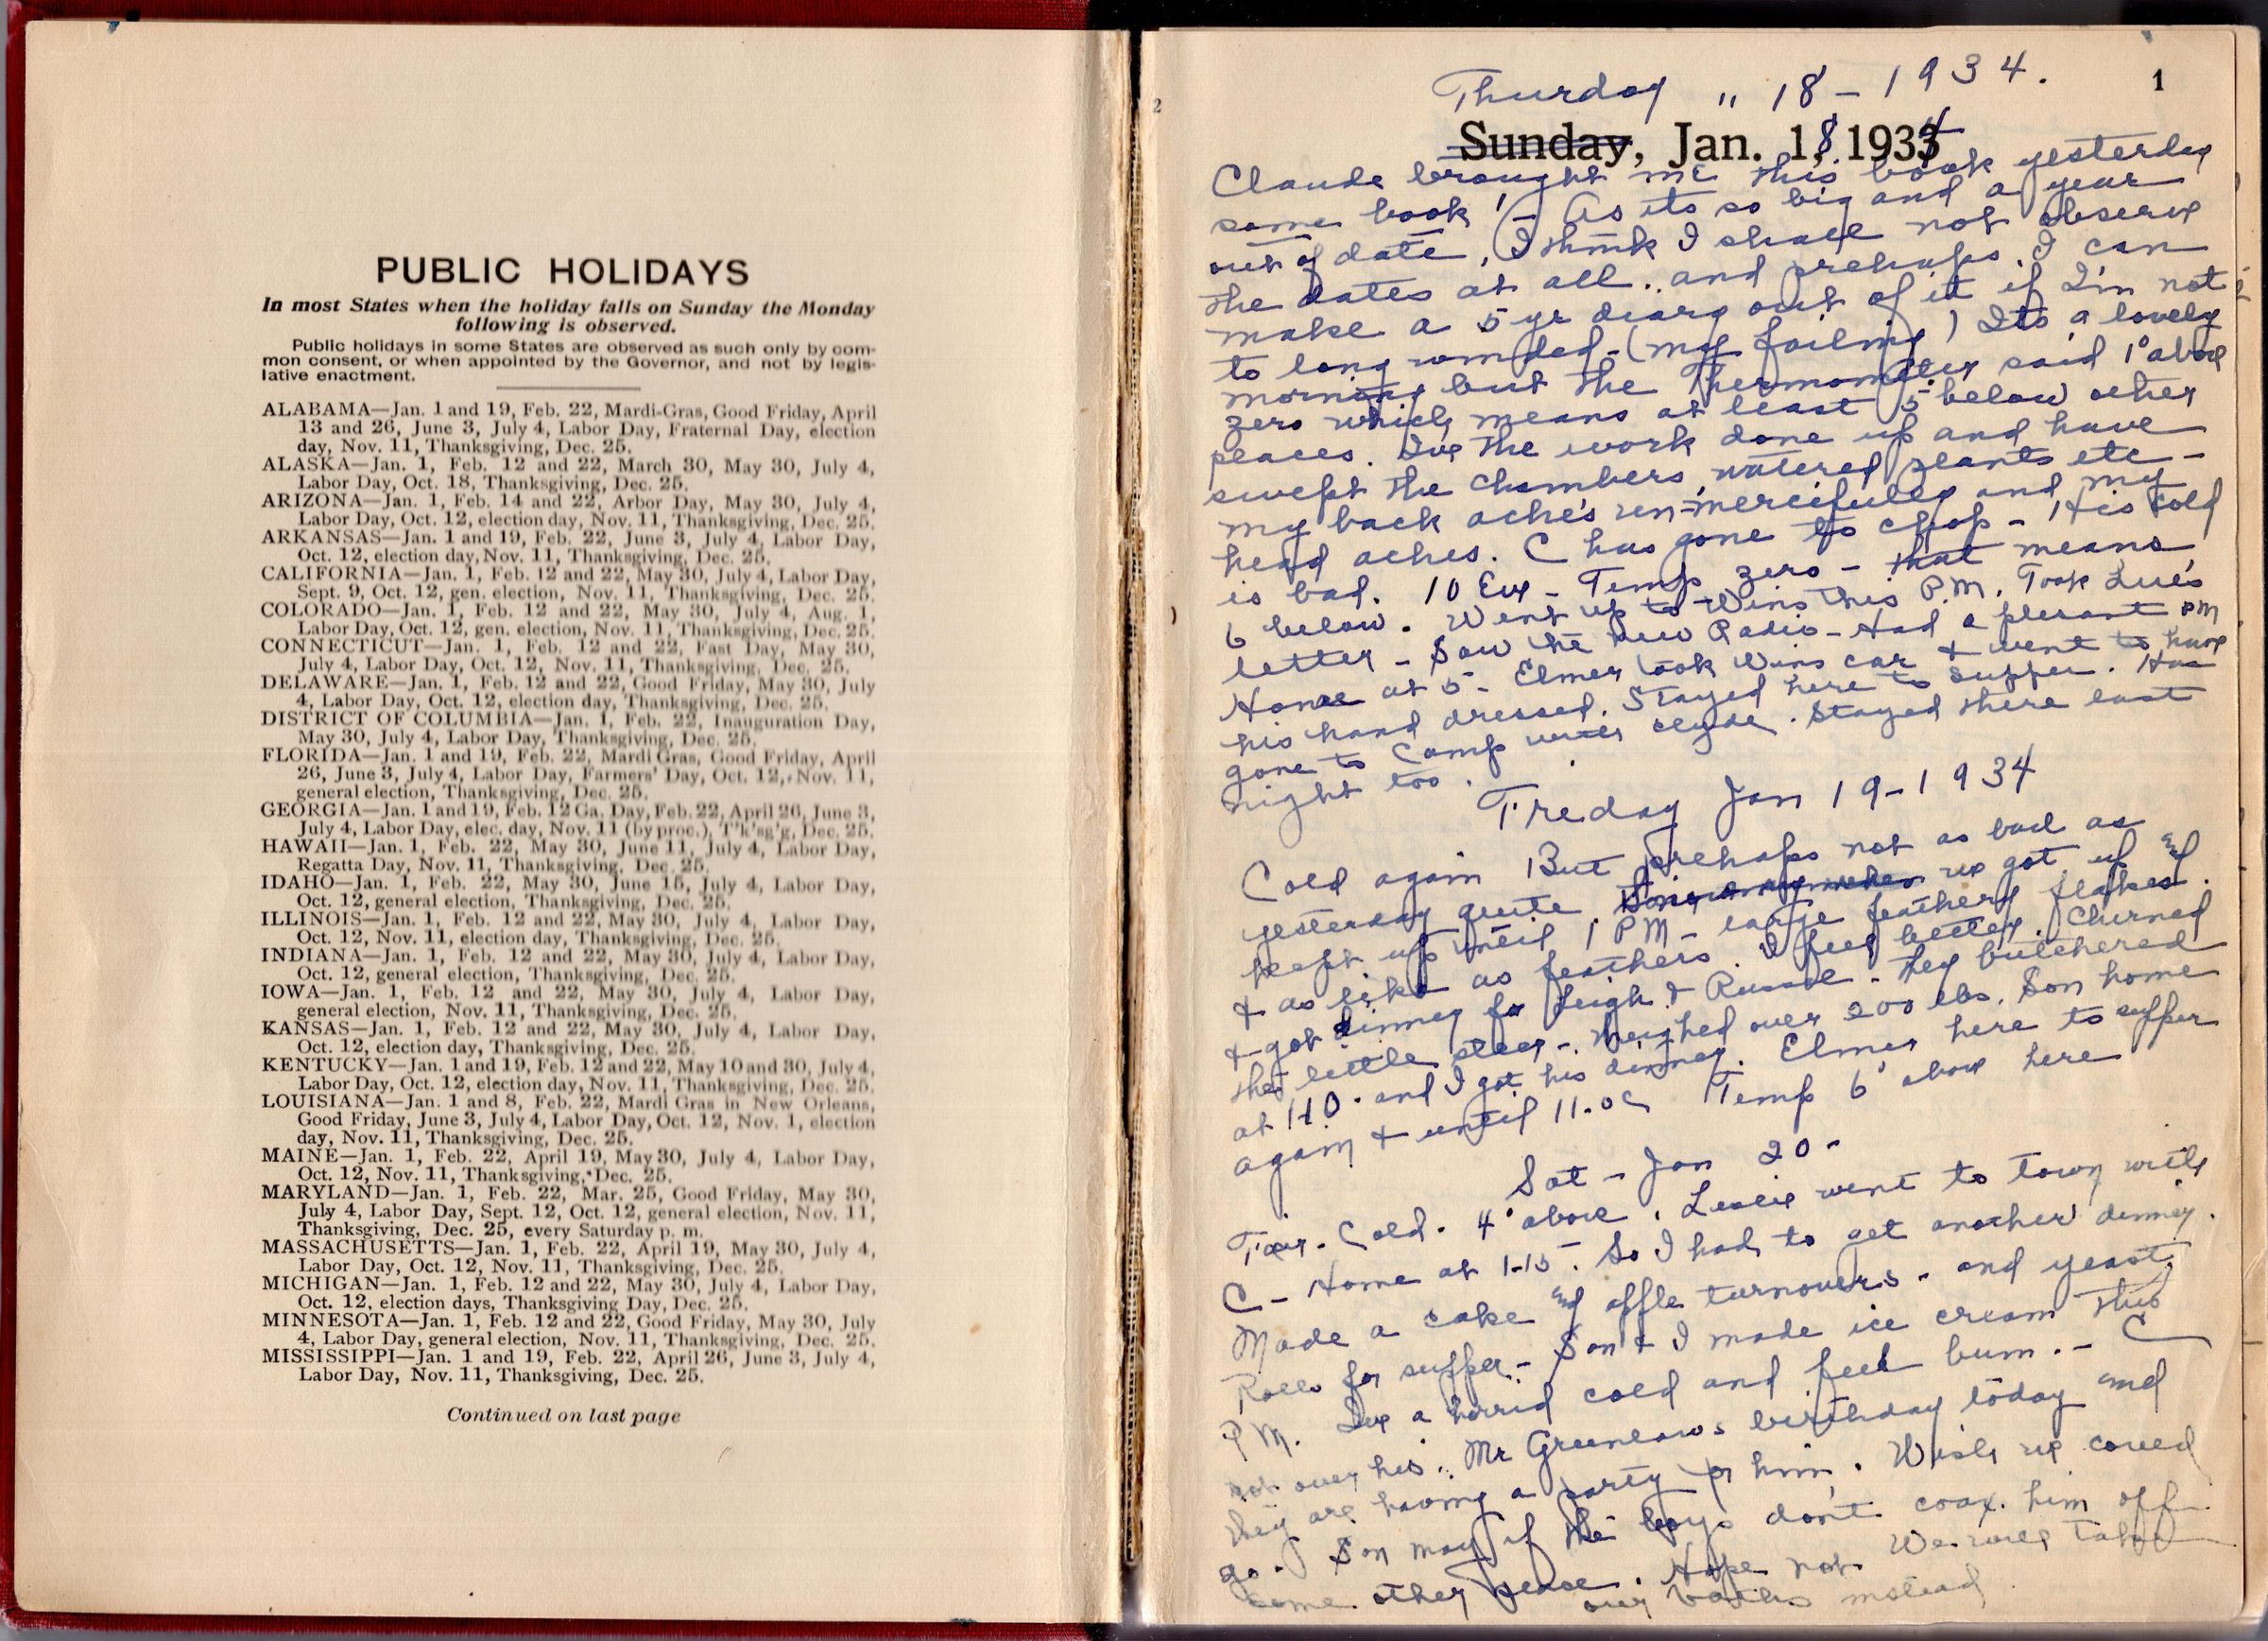 PUBLIC HOLIDAYS
In most States when the holiday falls on Sunday the Monday
following is observed.
Public holidays in some States are observed as such only by com-
mon consent, or when appointed by the Governor, and not by legis-
lative enactment.
ALABAMA—Jan. 1 and 19, Feb. 22, Mardi-Gras, Good Friday, April
13 and 26, June 3, July 4, Labor Day, Fraternal Day, election
day, Nov. 11, Thanksgiving, Dec. 25.
ALASKA—Jan. 1, Feb. 12 and 22, March 30, May 30, July 4,
Labor Day, Oct. 18, Thanksgiving, Dec. 25.
ARIZONA—Jan. 1, Feb. 14 and 22, Arbor Day, May 30, July 4,
Labor Day, Oct. 12, election day, Nov. 11, Thanksgiving, Dec. 25.
ARKANSAS—Jan. 1 and 19, Feb. 22, June 3, July 4, Labor Day,
Oct. 12, election day, Nov. 11, Thanksgiving, Dec. 25.
CALIFORNIA—Jan. 1, Feb. 12 and 22, May 30, July 4, Labor Day,
Sept. 9, Oct. 12, gen. election, Nov. 11, Thanksgiving, Dec. 25.
COLORADO—Jan. 1, Feb. 12 and 22, May 30, July 4, Aug. 1,
Labor Day, Oct. 12, gen. election, Nov. 11, Thanksgiving, Dec. 25.
CONNECTICUT—Jan. 1, Feb. 12 and 22, Fast Day, May 30,
July 4, Labor Day, Oct. 12, Nov. 11, Thanksgiving, Dec. 25.
DELAWARE—Jan. 1, Feb. 12 and 22, Good Friday, May 30, July
4, Labor Day, Oct. 12, election day, Thanksgiving, Dec. 25.
DISTRICT OF COLUMBIA—Jan. 1, Feb. 22, Inauguration Day,
May 30, July 4, Labor Day, Thanksgiving, Dec. 25.
FLORIDA—Jan. 1 and 19, Feb. 22, Mardi Gras, Good Friday, April
26, June 3, July 4, Labor Day, Farmers' Day, Oct. 12, Nov. 11,
general election, Thanksgiving, Dec. 25.
GEORGIA—Jan. 1 and 19, Feb. 12 Ga. Day, Feb. 22, April 26, June 3,
July 4, Labor Day, elec. day, Nov. 11 (by proc.), T'k'sg'g, Dec. 25.
HAWAII—Jan. 1, Feb. 22, May 30, June 11, July 4, Labor Day,
Regatta Day, Nov. 11, Thanksgiving, Dec. 25.
IDAHO—Jan. 1, Feb. 22, May 30, June 15, July 4, Labor Day,
Oct. 12, general election, Thanksgiving, Dec. 25.
ILLINOIS—Jan. 1, Feb. 12 and 22, May 30, July 4, Labor Day,
Oct. 12, Nov. 11, election day, Thanksgiving, Dec. 25.
INDIANA—Jan. 1, Feb. 12 and 22, May 30, July 4, Labor Day,
Oct. 12, general election, Thanksgiving, Dec. 25.
IOWA—Jan. 1, Feb. 12 and 22, May 30, July 4, Labor Day,
general election, Nov. 11, Thanksgiving, Dec. 25.
KANSAS—Jan. 1, Feb. 12 and 22, May 30, July 4, Labor Day,
Oct. 12, election day, Thanksgiving, Dec. 25.
KENTUCKY—Jan. 1 and 19, Feb. 12 and 22, May 10 and 30, July 4,
Labor Day, Oct. 12, election day, Nov. 11, Thanksgiving, Dec. 25.
LOUISIANA—Jan. 1 and 8, Feb. 22, Mardi Gras in New Orleans,
Good Friday, June 3, July 4, Labor Day, Oct. 12, Nov. 1, election
day, Nov. 11, Thanksgiving, Dec. 25.
MAINE—Jan. 1, Feb. 22, April 19, May 30, July 4, Labor Day,
Oct. 12, Nov. 11, Thanksgiving, Dec. 25.
MARYLAND—Jan. 1, Feb. 22, Mar. 25, Good Friday, May 30,
July 4, Labor Day, Sept. 12, Oct. 12, general election, Nov. 11,
Thanksgiving, Dec. 25, every Saturday p. m.
MASSACHUSETTS—Jan. 1, Feb. 22, April 19, May 30, July 4,
Labor Day, Oct. 12, Nov. 11, Thanksgiving, Dec. 25.
MICHIGAN—Jan. 1, Feb. 12 and 22, May 30, July 4, Labor Day,
Oct. 12, election days, Thanksgiving Day, Dec. 25.
MINNESOTA—Jan. 1, Feb. 12 and 22, Good Friday, May 30, July
4, Labor Day, general election, Nov. 11, Thanksgiving, Dec. 25.
MISSISSIPPI—Jan. 1 and 19, Feb. 22, April 26, June 3, July 4,
Labor Day, Nov. 11, Thanksgiving, Dec. 25.
Continued on last page
2
1
Thurday " 18 - 1934.
Sunday, Jan. 18, 1934
Claude brought me this book yesterday
some book! - As its so big and a year
out of date, I think I shall not observe
the dates at all.. and prehaps I can
make a 5 yr diary out of it if I'm not
to long winded - (my failing) Its a lovely
morning but the Thermometer said 1° above
zero which means at least 5 below other
places. Ive the work done up and have
swept the chambers, watered plants etc -
my back ache's un-mercifully and my
head aches. C has gone to chop - His cold
is bad. 10 Eve - Temp zero - that means
6 below. Went up to Wins this P.M. Took Lue's
letter - Saw the new Radio - Had a plesant PM
Home at 5 - Elmer took Wins car & went to have
his hand dressed. Stayed here to supper. Has
gone to Camp with Clyde. Stayed there last
night too.
Friday Jan 19 - 1934
Cold again But prehaps not as bad as
yesterday quite. we got up and
kept up until 1 PM - large feathery flakes.
& as like as feathers. I feel better. Churned
& got dinner for Leigh & Russell - they butchered
the little steer - weighed over 200 lbs. Son home
at 1-10 - and I got his dinner. Elmer here to supper
again & until 11.00 Temp 6° above here
Sat - Jan 20 -
Fair. Cold. 4° above. Leslie went to town with
C - Home at 1-15. So I had to get another dinner.
Made a cake and apple turnovers - and yeast
Rolls for supper - Son & I made ice cream this
P M. Ive a horrid cold and feel bum. - C
not over his. Mr Greenlaws birthday today and
they are having a party for him. Wish we could
go. Son may if the boys don't coax him off
some other place. Hope not We will take
our baths instead